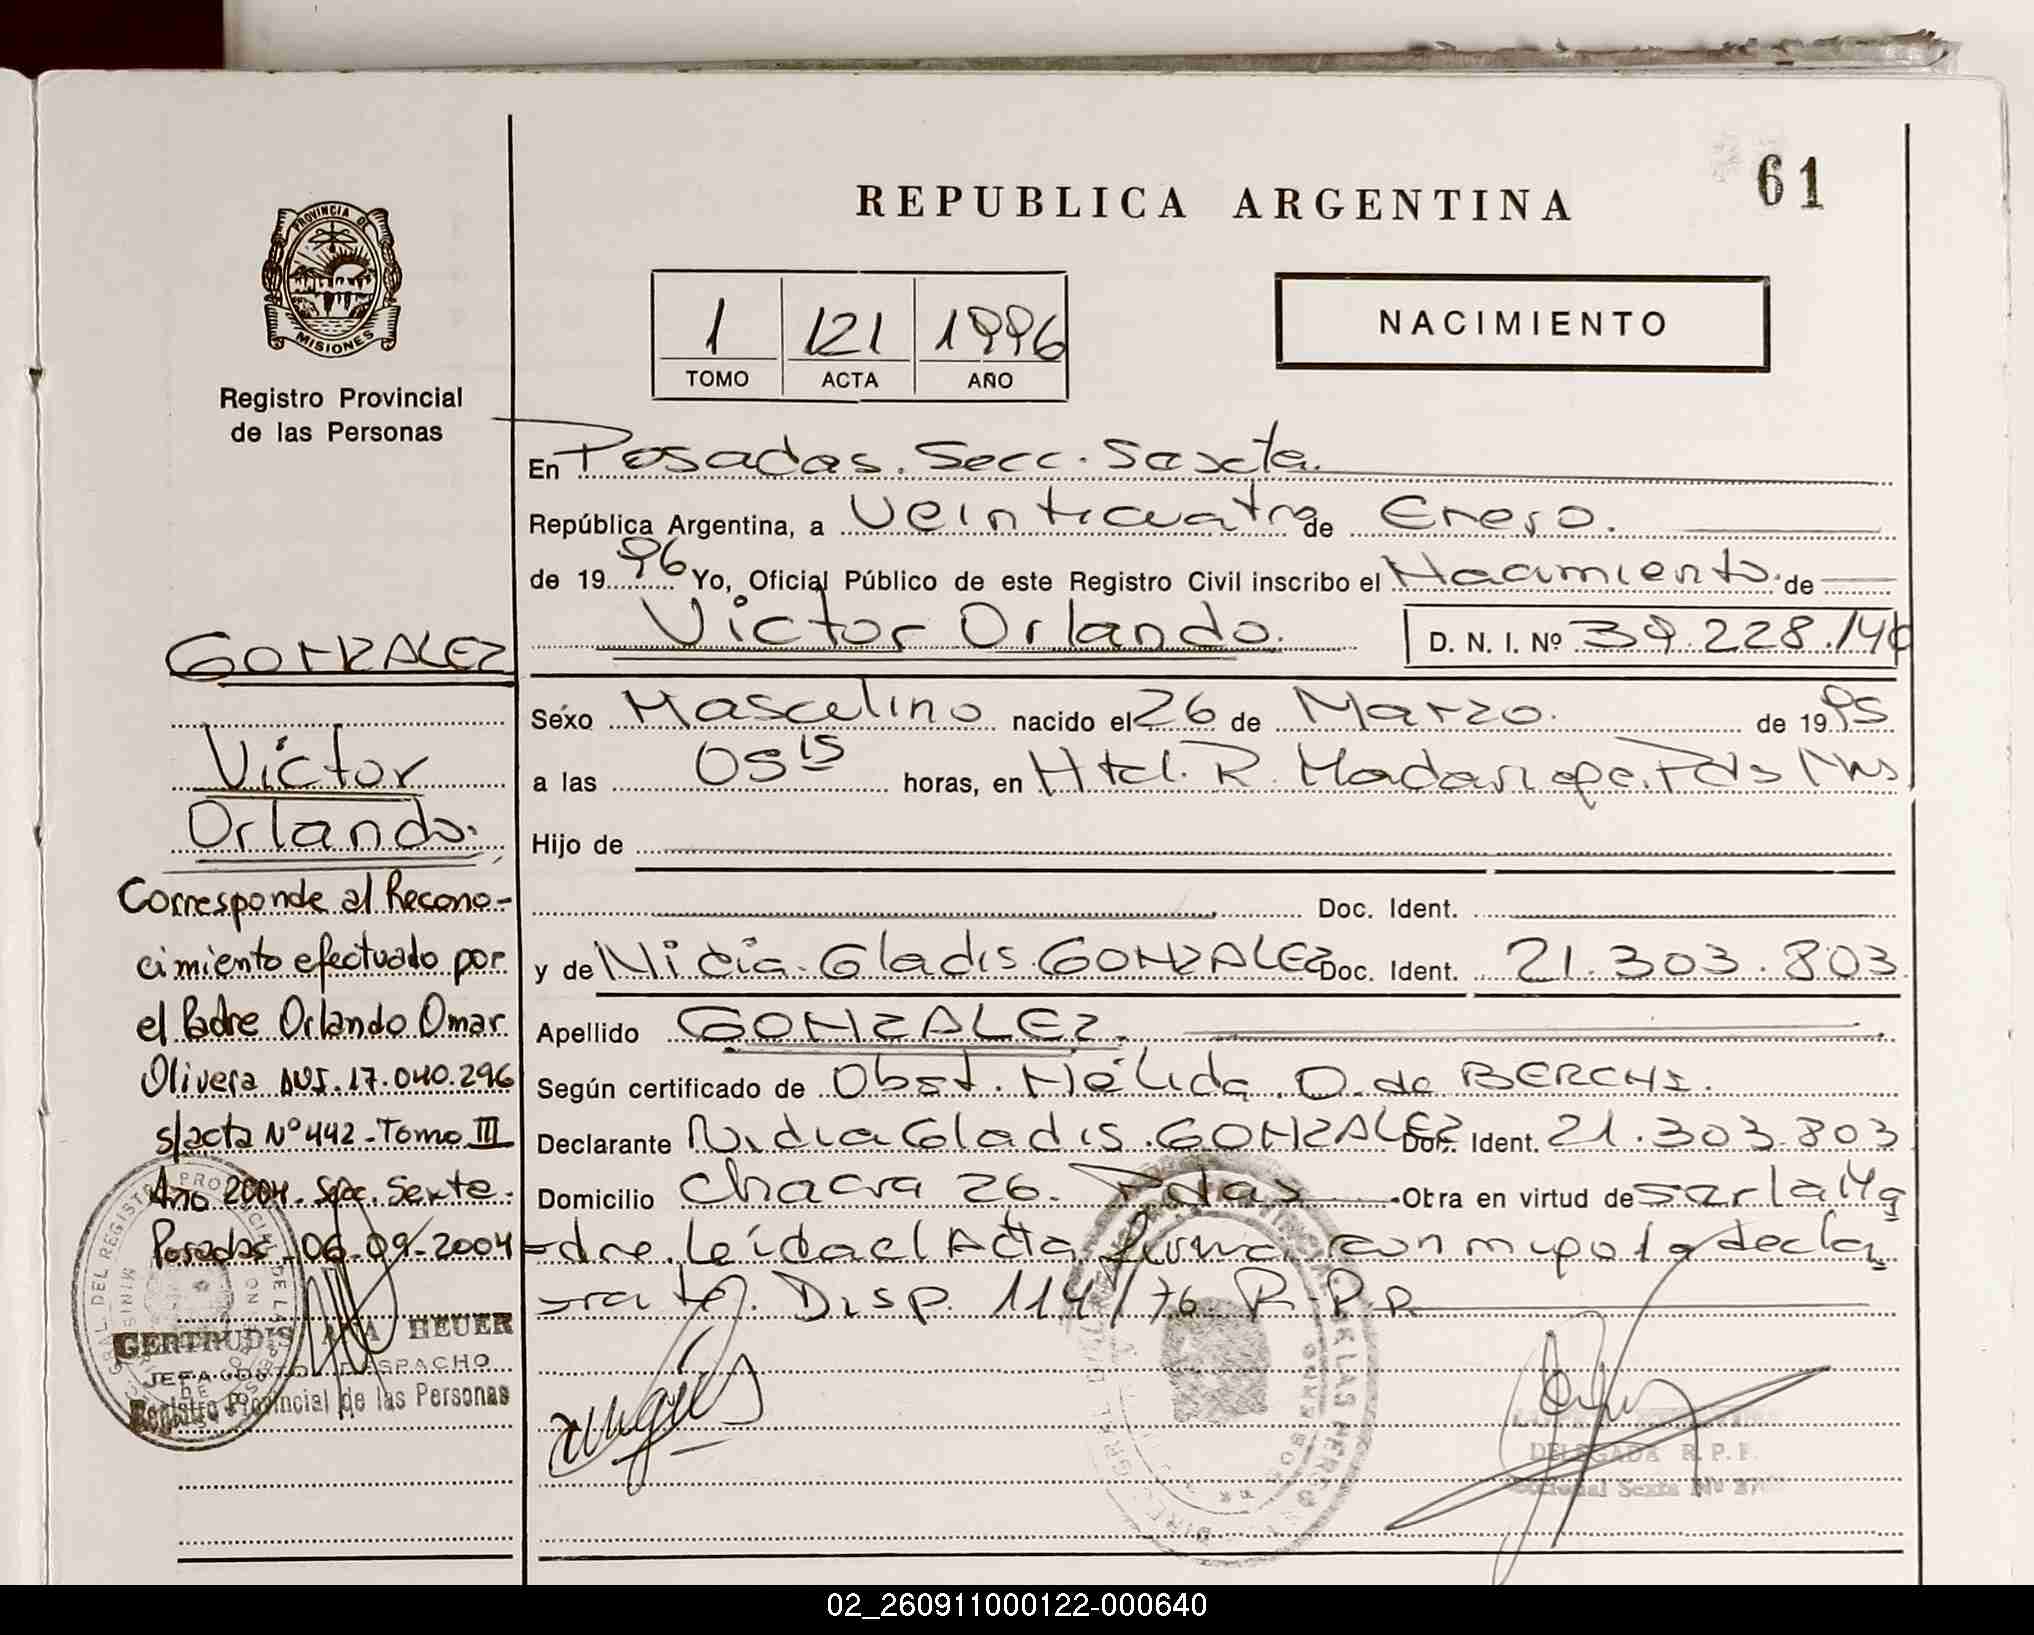 61
REPUBLICA ARGENTINA
PROVINCIA DE
MISIONES
Registro Provincial
de las Personas
1 121 1996
TOMO ACTA AÑO
NACIMIENTO
En Posadas. Secc. Sexta.
República Argentina, a Veinticuatro de Enero.
de 1996 Yo, Oficial Público de este Registro Civil inscribo el Nacimiento de
Victor Orlando. D. N. I. Nº 39.228.140
Sexo Masculino nacido el 26 de Marzo. de 1995
a las 05 15 horas, en Htal. R. Madariaga. Pdas Mns
Hijo de
Doc. Ident.
y de Nidia Gladis GONZALEZ Doc. Ident. 21.303.803
Apellido GONZALEZ.
Según certificado de Obst. Nélida O. de BERCHI.
Declarante Nidia Gladis GONZALEZ Doc. Ident. 21.303.803
Domicilio Chacra 26. Pdas Obra en virtud de ser la Ma
dre. Leída el Acta firma con migo la decla
rante. Disp. 114/76 R.P.P.
DELEGADA R.P.P.
Seccional Sexta
GONZALEZ
Victor
Orlando.
Corresponde al Recono-
cimiento efectuado por
el Padre Orlando Omar
Olivera DNI. 17.040.296
s/acta Nº 442 - Tomo III
Año 2004. Sec. Sexta.
Posadas - 06-09-2004
GERTRUDIS ANA HEUER
JEFA DPTO. DESPACHO
Registro Provincial de las Personas
02_260911000122-000640